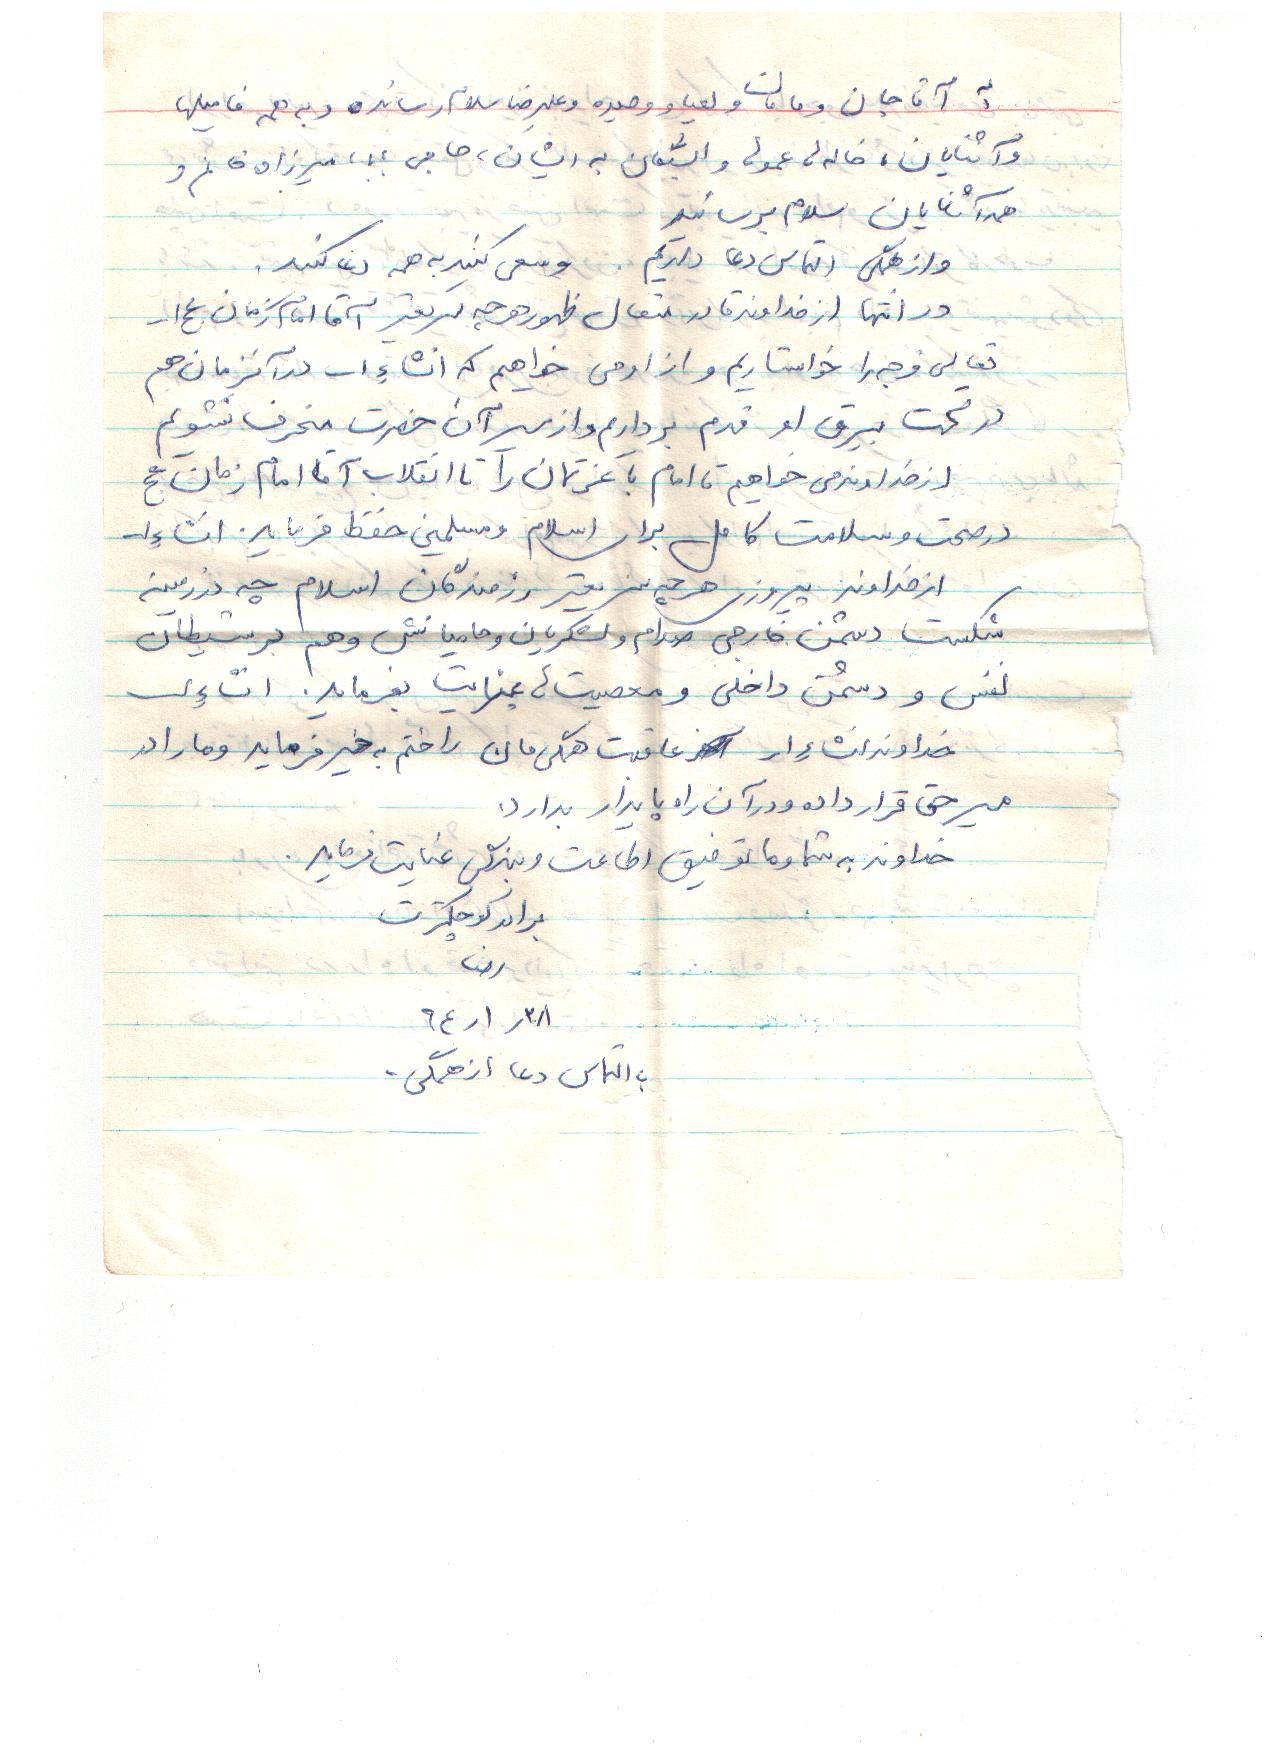 به آقا جان و مامان و لعیا و وحیده و علیرضا سلام رسانده و به همه فامیلها
و آشنایان، خاله عمو و ایشان، حاجی بابا، میرزاده خانم و
همه آشنایان سلام برسانید
و از همگی التماس دعا داریم. و سعی کنید به همه دعا کنید.
در انتها از خداوند قادر متعال ظهور هر چه سریعتر آقا امام زمان عج ا..
تعالی فرجه را خواستاریم و از او می خواهیم که انشاءا.. در آنزمان هم
در تحت بیرق او قدم برداریم و از سیر آن حضرت منحرف نشویم
از خداوند می خواهیم تا امام با عزتمان را تا انقلاب آقا امام زمان عج
در صحت و سلامت کامل برای اسلام و مسلمین حفظ فرماید. انشاءا..
از خداوند پیروزی هر چه سریعتر رزمندگان اسلام چه در زمینه
شکست دشمن خارجی صدام و لشکریان و حامیانش و هم بر شیطان
نفس و دشمن داخلی و معصیت عنایت بفرماید. انشاءا..
خداوند انشاءا.. عاقبت همگی مان را ختم به خیر فرماید و ما را در
مسیر حق قرار داده و در آن راه پایدار بدارد.
خداوند به شما و ما توفیق اطاعت و بندگی عنایت فرماید.
برادر کوچکترت
رضا
۲۸ر۱ر۶۴
با التماس دعا از همگی-